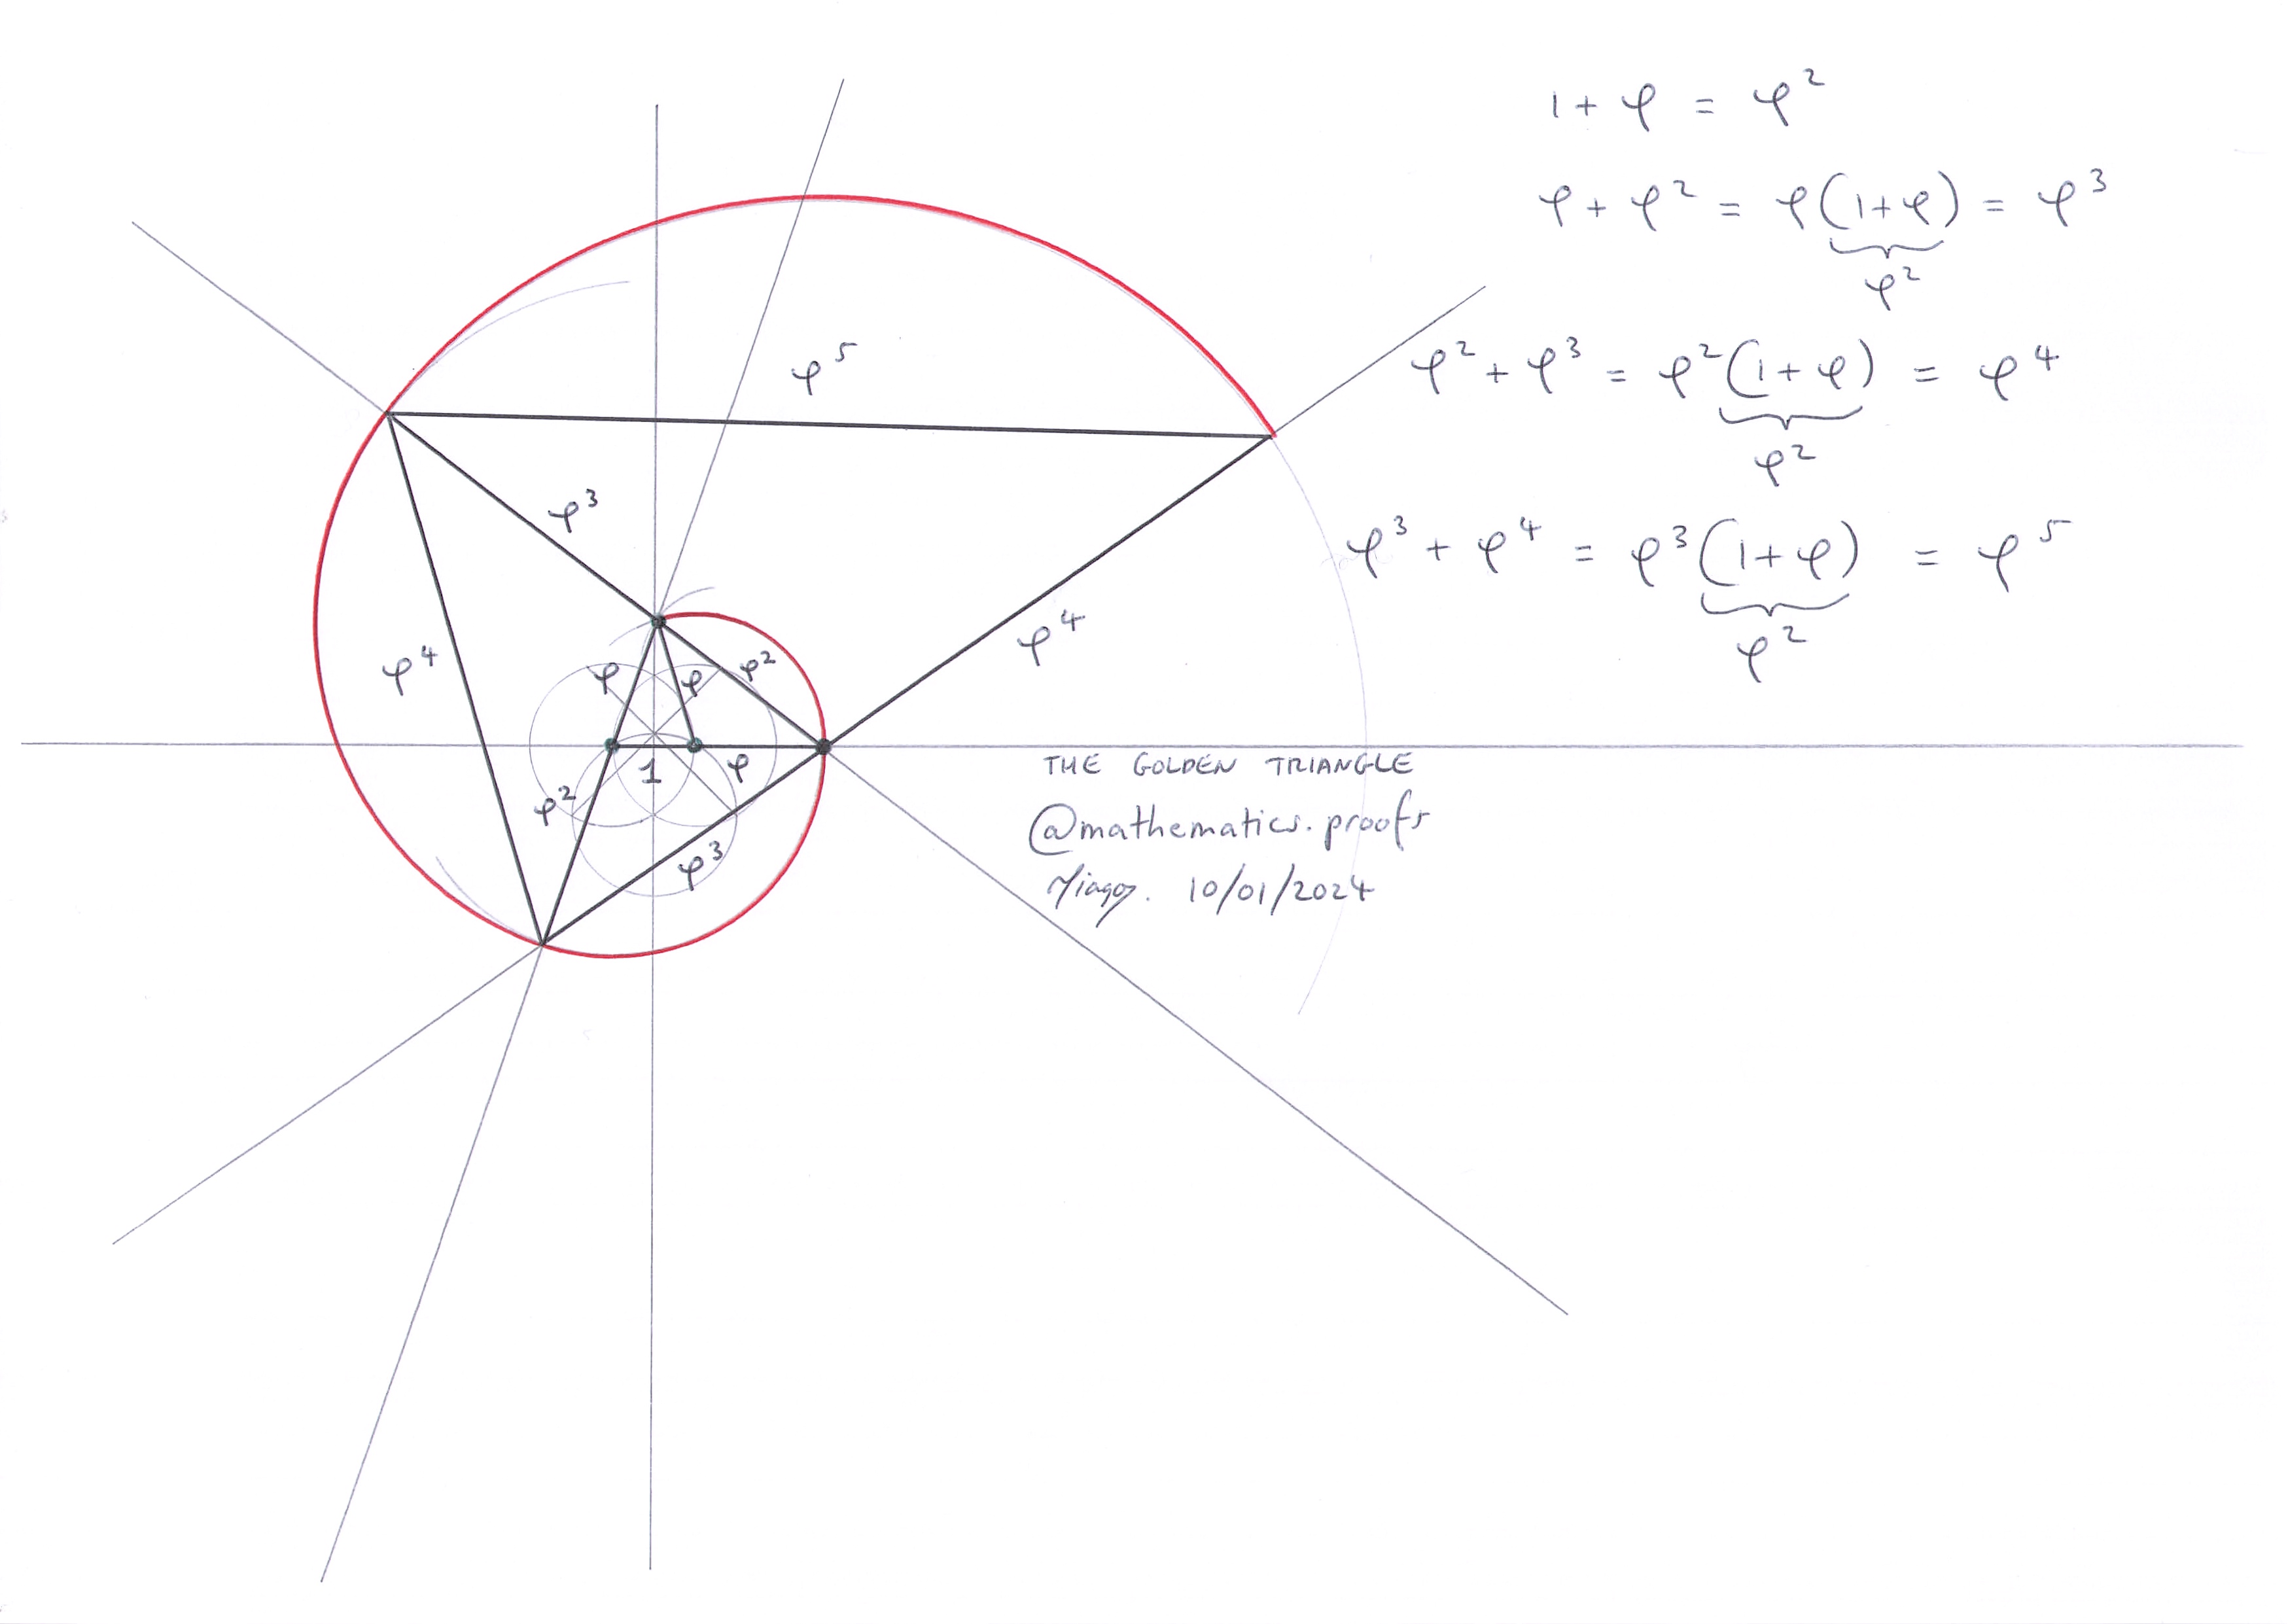 1 + φ = φ²
φ + φ² = φ(1+φ) = φ³
φ²
φ² + φ³ = φ²(1+φ) = φ⁴
φ²
φ³ + φ⁴ = φ³(1+φ) = φ⁵
φ²
φ⁵
φ³
φ⁴
φ⁴
φ
φ
φ²
1
φ
φ²
φ³
THE GOLDEN TRIANGLE
@mathematics.proofs
10/01/2024